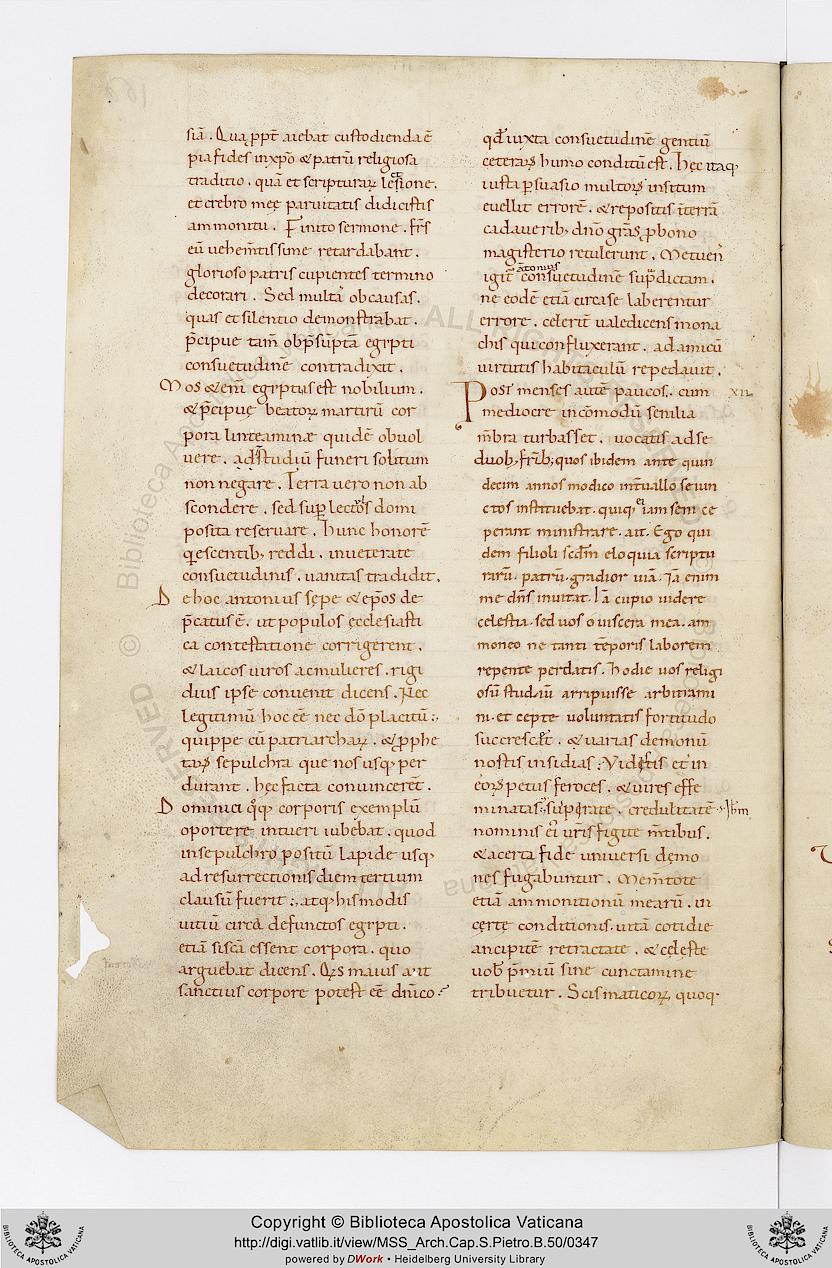 siā. Qua ppt̄ aiebat custodienda ē
pia fides in xp̄o & patrū religiosa
traditio. quā et scripturaꝝ lectione.
et crebro męę paruitatis didicistis
ammonitu. Finito sermone. fr̄s
eū uehem̄tissime retardabant.
glorioso patris cupientes termino
decorari. Sed multa ob causas.
quas et silentio demonstrabat.
p̄cipue tam̄ ob p̄sūptā egypti
consuetudine contradixit.
Mos & eni egyptus est nobilium.
& p̄cipuę beatoꝝ martirū cor
pora linteaminæ quidē obuol
uere. ad studiū funeri solitum
non negare. Terra uero non ab
scondere. sed sup lectos domi
posita reseruare. hunc honorē
qescentib; reddi. inueterate
consuetudinis. uanitas tradidit.
De hoc antonius sępe & ep̄os de
p̄catus ē. ut populos ęcclesiasti
ca contestatione corrigerent.
& laicos uiros ac mulieres. rigi
dius ipse conuenit dicens. Nec
legitimū hoc eē nec dō placitū.
quippe cū patriarchaꝝ. & p̄phe
taꝝ sepulchra que nos usq; per
durant. hęc facta conuincerēt.
Dominici q̄q; corporis exemplū
oportere intueri iubebat. quod
in sepulchro positū lapide usq;
ad resurrectionis diem tertium
clausū fuerit. atq; his modis
uitiū circa defunctos egypti.
etiā si sca essent corpora. quo
arguebat dicens. Qs maius aut
sanctius corpore potest eē dn̄ico
qd̄ iuxta consuetudinē gentiū
ceteraꝝ humo conditū est. hęc itaq;
iusta p̄suasio multoꝝ insitum
euellit errorē. & repositis in terrā
cadauerib; dn̄o gr̄as p bono
magisterio retulerunt. Metuen̄
igit̄ antonius consuetudinē sup̄dictam.
ne eodē etiā circa se laberentur
errore. celeriū ualedicens mona
chis qui confluxerant. ad amicū
uirtutis habitaculū repedauit.
Post menses autē paucos. cum XII
mediocre incōmodū senilia
m̄bra turbasset. uocatis ad se
duob; fr̄ib; quos ibidem ante quin
decim annos modico int̄uallo seiun
ctos instituebat. quiq; ei iam seni ce
perant ministrare. ait. Ego qui
dem filioli sedm̄ eloquia scriptu
rarū. patrū. gradior uiā. Iā enim
me dn̄s inuitat. Iā cupio uidere
celestia. sed uos o uiscera mea. am
moneo ne tanti tēporis laborem
repente perdatis. hodie uos religi
osū studiū arripuisse arbitrami
ni. et cepte uoluntatis fortitudo
succrescat. & uarias demonū
nostis insidias. Vidistis et in
eoꝝ petus feroces. & uires effe
minatas. suspirate. credulitatē ihm
nominis ei uris figite m̄tibus.
& a certa fide uniuersi dęmo
nes fugabuntur. Mem̄tote
etiā ammonitionū mearū. in
cęrte conditionis. uitā cotidie
ancipitē retractate. & cęleste
uob p̄miū sine cunctamine
tribuetur. Scismaticoꝝ quoq;
Copyright © Biblioteca Apostolica Vaticana
http://digi.vatlib.it/view/MSS_Arch.Cap.S.Pietro.B.50/0347
powered by DWork • Heidelberg University Library